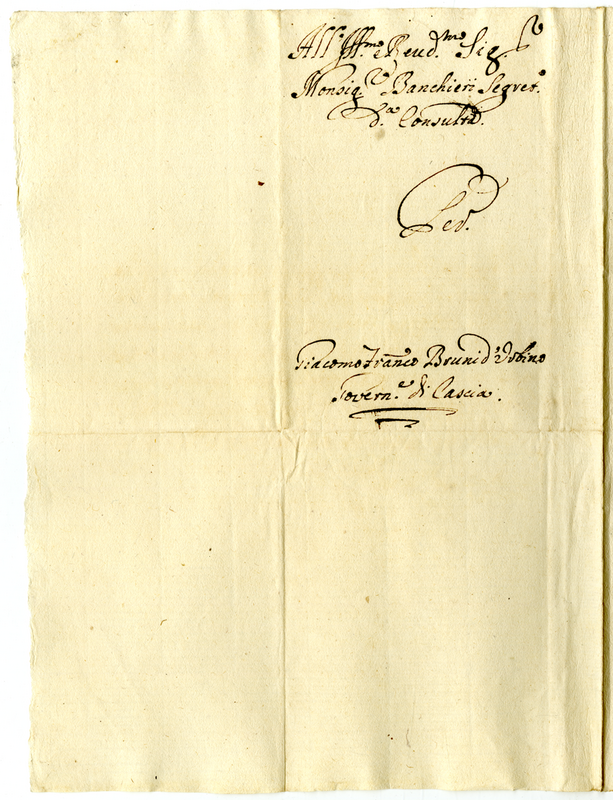 All' Ill.mo e Reud.mo Sig.r
Monsig.r Banchieri Segret.o
d.a Consulta.
Per
Giacomo Franc.o Bruni d'Urbino
Govern.e di Cascia.